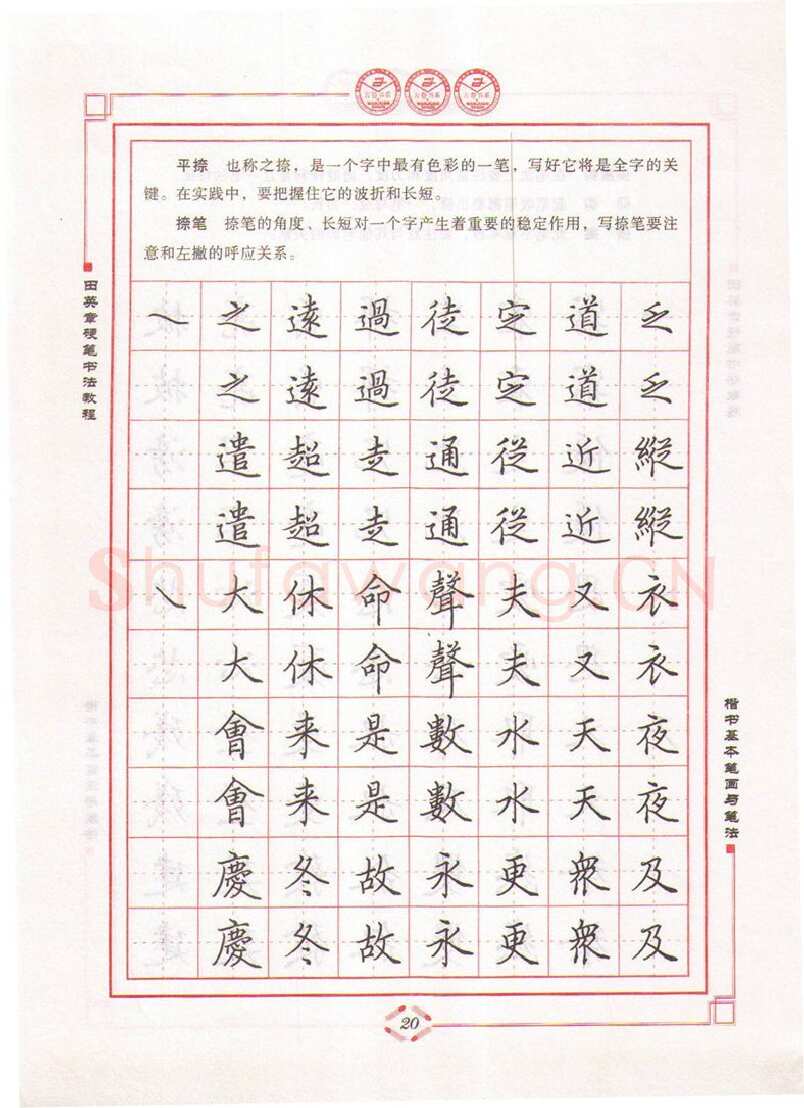 平捺　也称之捺，是一个字中最有色彩的一笔，写好它将是全字的关
键。在实践中，要把握住它的波折和长短。
捺笔　捺笔的角度、长短对一个字产生着重要的稳定作用，写捺笔要注
意和左撇的呼应关系。
田英章硬笔书法教程
㇏ 之 遠 過 徒 定 道 乏
之 遠 過 徒 定 道 乏
遣 超 走 通 從 近 縱
遣 超 走 通 從 近 縱
㇏ 大 休 命 聲 夫 又 衣
大 休 命 聲 夫 又 衣
會 来 是 數 水 天 夜
會 来 是 數 水 天 夜
慶 冬 故 永 更 衆 及
慶 冬 故 永 更 衆 及
楷书基本笔画与笔法
Shufawang.CN
20